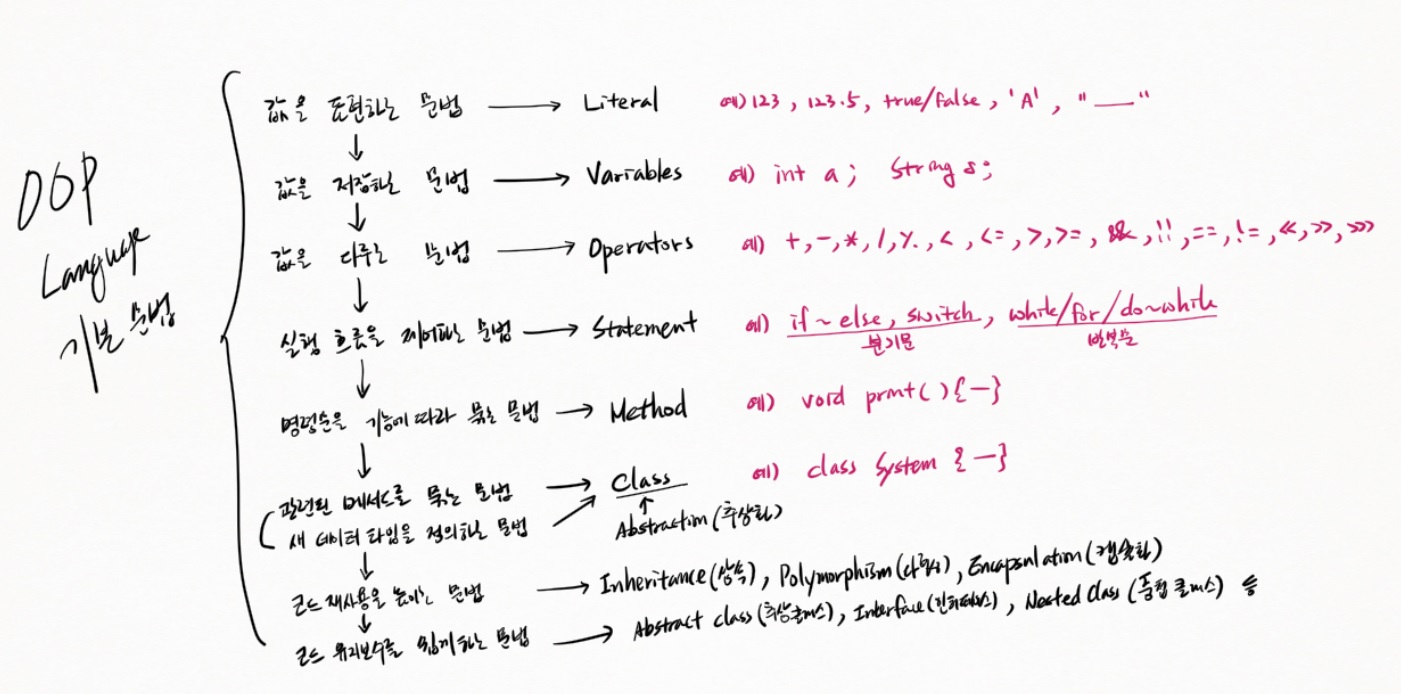 OOP
Language
기본 문법
값을 표현하는 문법 → Literal 예) 123, 123.5, true/false, 'A', "___"
값을 저장하는 문법 → Variables 예) int a; String s;
값을 다루는 문법 → Operators 예) +, -, *, /, %, <, <=, >, >=, &&, ||, ==, !=, <<, >>, >>>
실행 흐름을 제어하는 문법 → Statement 예) if ~ else, switch, while/for/do~while
분기문 반복문
명령문을 기능에 따라 묶는 문법 → Method 예) void print( ) {―}
관련된 메서드를 묶는 문법 → Class 예) class System {―}
새 데이터 타입을 정의하는 문법
Abstraction (추상화)
코드 재사용을 높이는 문법 → Inheritance(상속), Polymorphism(다형성), Encapsulation(캡슐화)
코드 유지보수를 쉽게 하는 문법 → Abstract class (추상클래스), Interface(인터페이스), Nested Class (중첩 클래스) 등